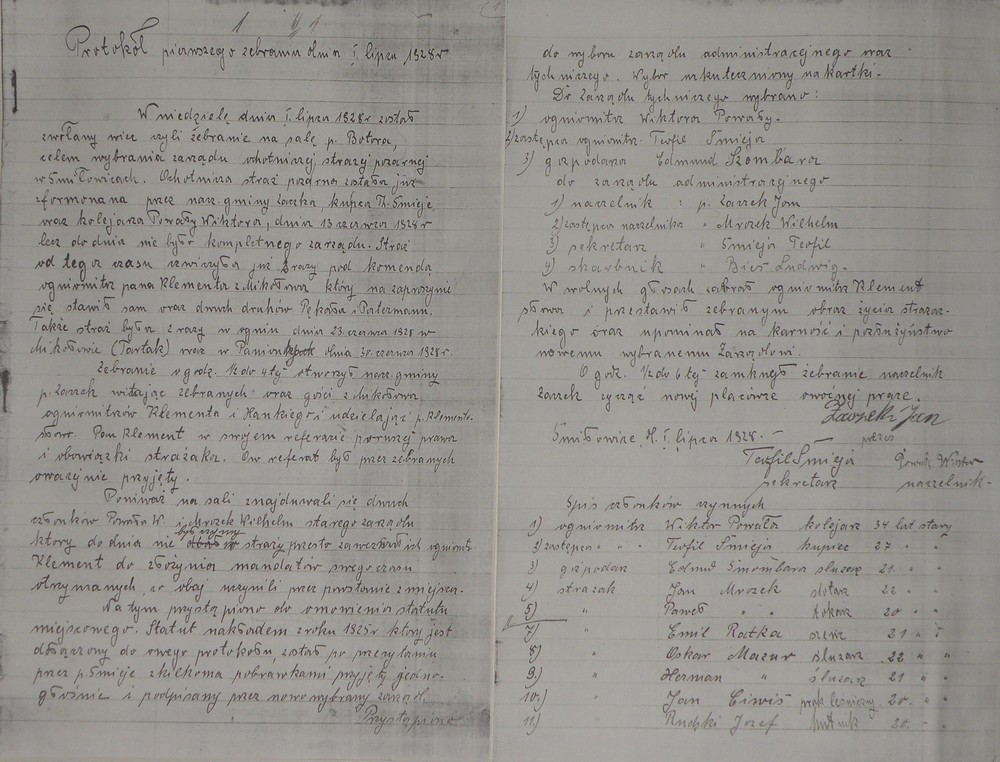 Protokół pierwszego zebrania dnia 1. lipca 1928r
W niedzielę dnia 1. lipca 1928r został
zwołany wiec czyli żebranie na salę p. Botora,
celem wybrania zarządu ochotniczej straży pożarnej
w Śmiłowicach. Ochotnicza straż pożarna została już
zformowana przez nacz. gminy Zaczka, kupca Th. Śmieję
oraz kolejarza Powały Wiktora, dnia 13 czerwca 1928r
lecz do dnia nie było kompletnego zarządu. Straż
od tego czasu czwiczyła już 3 razy pod komendą
ogniomitrz pana Klementa z Mikołowa który na zaproszynie
się stawił sam oraz dwuch druhów Pękała i Patermann.
Także straż była 2 razy w ogniu dnia 23. czerwca 1928 w
Mikołowie (Tartak) oraz w dnia 30. czerwca 1928r.
Zebranie o godz. 1/2 do 4 tej otworzył nacz. gminy
p. Zaczek witając zebranych oraz gości z Mikołowa
ogniomitrzów Klementa i Hankiego i udzielając p. Klement.
słowo. Pan Klement w swojem referacie poruszył prawa
i obowiązki strażaka. Ów referat był przez zebranych
owacyjnie przyjęty.
Poniważ na sali znajduwali się dwuch
członków Powała W. i Mrozek Wilhelm starego zarządu
ktory do dnia nie był czynny w straży przesto zawezwał ich ogniomit.
Klement do złożynia mandatów swego czasu
otrzymanych, co obaj uczynili przez powstanie z miejsca.
Na tym przystąpiono do omowienia statutu
miejscowego. Statut nakładem z roku 1925r ktory jest
dołączony do owego protokołu, został po przeczytaniu
przez p. Śmieje z kilkoma poprawkami przyjęty jedno-
głośnie i podpisany przez nowo wybrany zarząd.
Przystąpiono
do wyboru zarządu administracejnego oraz
tychniczego. Wybor uzkuteczniony na kartki.
Do Zarządu tychniczego wybrano:
1) ogniomitrz Wiktora Powały.
2) zastępca ogniomitr. Teofil Śmieja
3) gospodarz Edmund Szombara
do zarządu administracejnego
1) naczelnik : p. Zaczek Jan
2) zastępca naczelnika " Mrozek Wilhelm
3) sekretarz " Śmieja Teofil
4) skarbnik " Bies Ludwig.
W wolnych głosach zabrał ogniomitrz Klement
słowa i przestawił zebranym obraz życia strażac-
kiego oraz upominał na karność i posłużyństwo
nowemu wybranemu Zarządowi.
O godz. 1/2 do 6 tej zamknął żebranie naczelnik
Zaczek życząc nowej placówce owocnej pracę.
Zaczek Jan
Śmiłowice, d. 1. lipca 1928. prezes
Teofil Śmieja Powała Wiktor
sekretarz naczelnik.
Spis członków czynnych
1) ogniomitrz Wiktor Powała kolejarz 34 lat stary
2) zastępca " " Teofil Śmieja kupiec 27 " "
3) gospodarz Edmund Szombara śluzarz 21 " "
4) strażak Jan Mrozek stolarz 22 " "
5) " Paweł " tokarz 20 " "
7) " Emil Ratka szewc 21 " "
8) " Oskar Mazur śluzarz 22 " "
9.) " Herman " śluzarz 21 " "
10.) " Jan Ciwiś prak. leśniczy 20. " "
11) Rudzki Jozef 20. " "